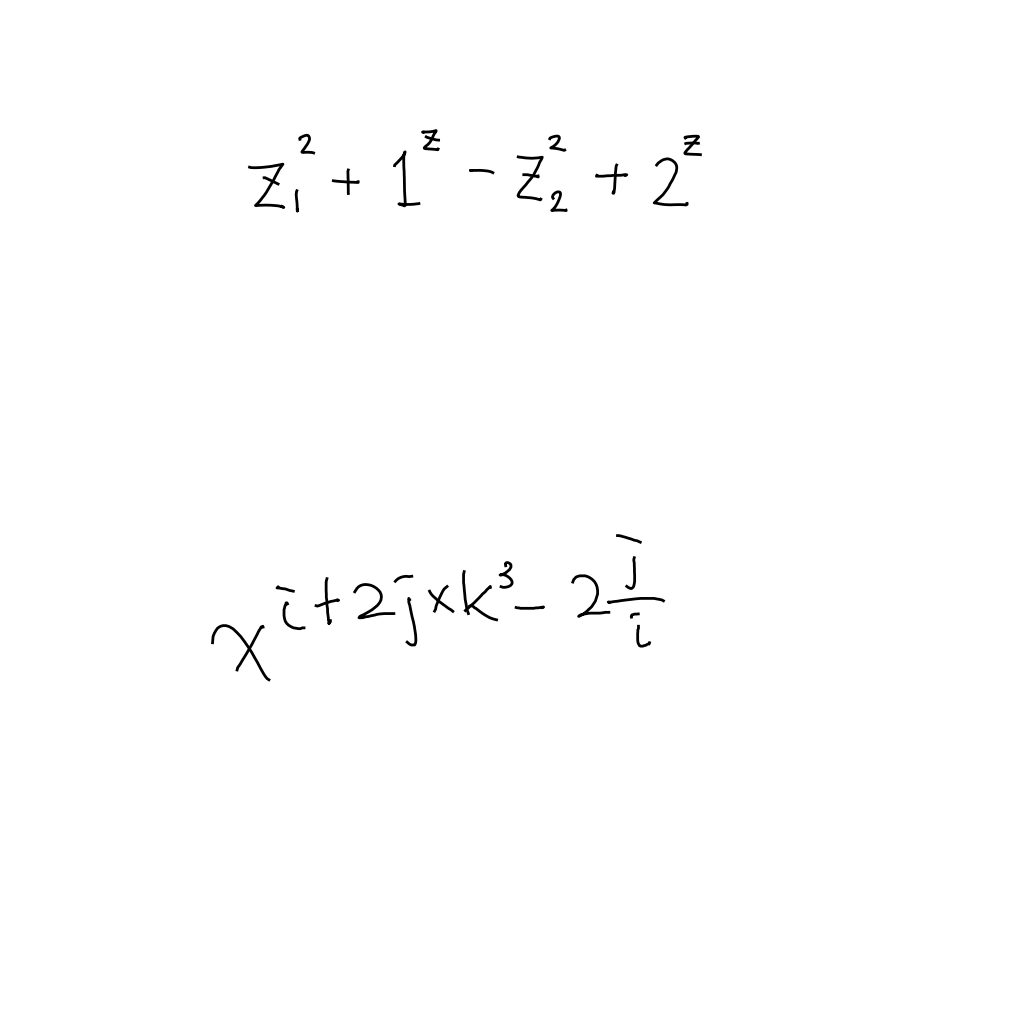 $z_1^2 + 1^z - z_2^2 + 2^z$
$x^{\bar{i}+2\bar{j} \times k^3 - 2\frac{\bar{j}}{\bar{i}}}$